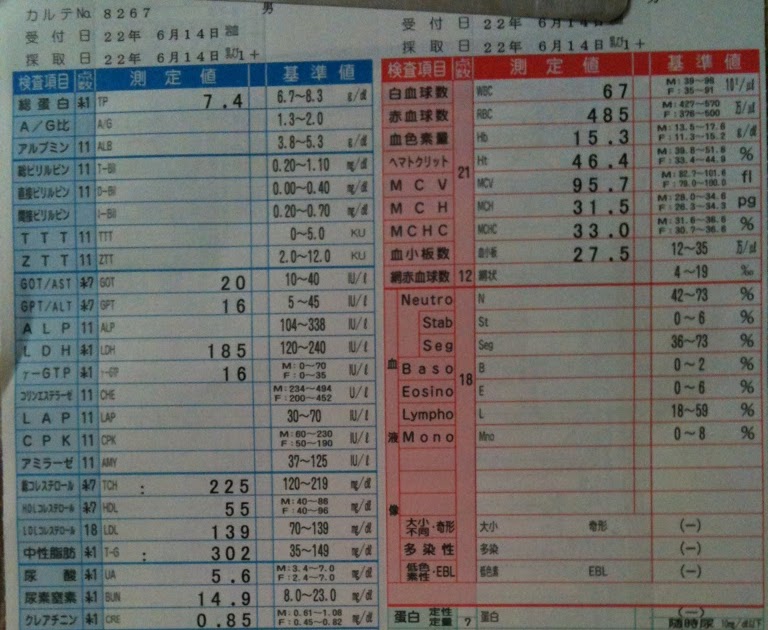 カルテNo. 8267 男
受付日 22年 6月14日
採取日 22年 6月14日
受付日 22年 6月14日
採取日 22年 6月14日
検査項目 点数 測定値 基準値
総蛋白 TP 7.4 6.7〜8.3 g/dl
A/G比 A/G 1.3〜2.0
アルブミン 11 ALB 3.8〜5.3 g/dl
総ビリルビン 11 T-Bil 0.20〜1.10 mg/dl
直接ビリルビン 11 D-Bil 0.00〜0.40 mg/dl
間接ビリルビン I-Bil 0.20〜0.70 mg/dl
TTT 11 TTT 0〜5.0 KU
ZTT 11 ZTT 2.0〜12.0 KU
GOT/AST GOT 20 10〜40 IU/l
GPT/ALT GPT 16 5〜45 IU/l
ALP 11 ALP 104〜338 IU/l
LDH LDH 185 120〜240 IU/l
γ-GTP γ-GTP 16 M:0〜70 F:0〜35 IU/l
コリンエステラーゼ 11 CHE M:234〜494 F:200〜452 U/l
LAP 11 LAP 30〜70 IU/l
CPK 11 CPK M:60〜230 F:50〜190 IU/l
アミラーゼ 11 AMY 37〜125 IU/l
総コレステロール TCH : 225 120〜219 mg/dl
HDLコレステロール HDL 55 M:40〜86 F:40〜96 mg/dl
LDLコレステロール 18 LDL 139 70〜139 mg/dl
中性脂肪 T-G : 302 35〜149 mg/dl
尿酸 UA 5.6 M:3.4〜7.0 F:2.4〜7.0 mg/dl
尿素窒素 BUN 14.9 8.0〜23.0 mg/dl
クレアチニン CRE 0.85 M:0.61〜1.08 F:0.45〜0.82 mg/dl
検査項目 点数 測定値 基準値
白血球数 WBC 67 M:39〜98 F:35〜91
赤血球数 RBC 485 M:427〜570 F:376〜500 万/μl
血色素量 Hb 15.3 M:13.5〜17.6 F:11.3〜15.2 g/dl
ヘマトクリット Ht 46.4 M:39.8〜51.8 F:33.4〜44.9 %
MCV 21 MCV 95.7 M:82.7〜101.6 F:79.0〜100.0 fl
MCH MCH 31.5 M:28.0〜34.6 F:26.3〜34.3 pg
MCHC MCHC 33.0 M:31.6〜36.6 F:30.7〜36.6 %
血小板数 血小板 27.5 12〜35 万/μl
網赤血球数 12 網状 4〜19 ‰
血液像 18
Neutro N 42〜73 %
Stab St 0〜6 %
Seg Seg 36〜73 %
Baso B 0〜2 %
Eosino E 0〜6 %
Lympho L 18〜59 %
Mono Mno 0〜8 %
大小不同・奇形 大小 奇形 (−)
多染性 多染 (−)
低色素性・EBL 低色素 EBL (−)
蛋白 定性 定量 7 蛋白 (−)
随時尿 10mg/dl以下